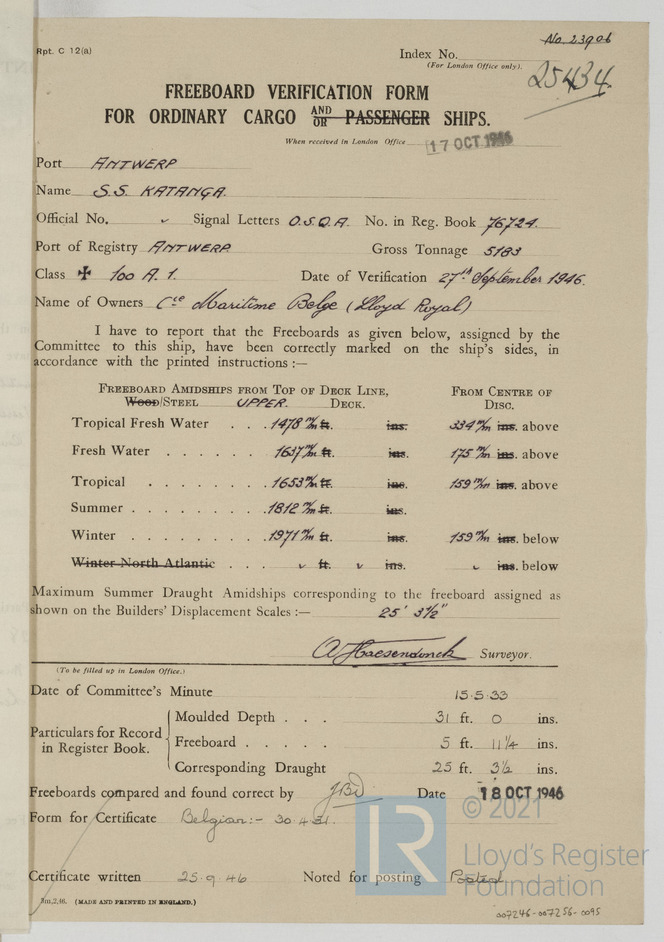 No. 23906
Rpt. C 12(a)
Index No.
(For London Office only).
25434
FREEBOARD VERIFICATION FORM
FOR ORDINARY CARGO AND OR PASSENGER SHIPS.
When received in London Office 17 OCT 1946
Port ANTWERP
Name S.S. KATANGA.
Official No. Signal Letters O.S.Q.A. No. in Reg. Book 76724.
Port of Registry ANTWERP. Gross Tonnage 5183
Class ✠ 100 A.1. Date of Verification 27th September 1946.
Name of Owners Cie Maritime Belge (Lloyd Royal)
I have to report that the Freeboards as given below, assigned by the
Committee to this ship, have been correctly marked on the ship's sides, in
accordance with the printed instructions :—
FREEBOARD AMIDSHIPS FROM TOP OF DECK LINE, FROM CENTRE OF
WOOD/STEEL UPPER. DECK. DISC.
Tropical Fresh Water . . . 1478 m/m ft. ins. 334 m/m ins. above
Fresh Water . . . . . . 1637 m/m ft. ins. 175 m/m ins. above
Tropical . . . . . . . 1653 m/m ft. ins. 159 m/m ins. above
Summer . . . . . . . 1812 m/m ft. ins.
Winter . . . . . . . 1971 m/m ft. ins. 159 m/m ins. below
Winter North Atlantic . . . ft. ins. ins. below
Maximum Summer Draught Amidships corresponding to the freeboard assigned as
shown on the Builders' Displacement Scales :— 25' 3½"
Surveyor.
(To be filled up in London Office.)
Date of Committee's Minute 15.5.33
Particulars for Record in Register Book.
Moulded Depth . . . 31 ft. 0 ins.
Freeboard . . . . . 5 ft. 11¼ ins.
Corresponding Draught 25 ft. 3½ ins.
Freeboards compared and found correct by Date 18 OCT 1946
Form for Certificate Belgian:- 30.4.31.
Certificate written 25.9.46 Noted for posting Posted
3m,2,46. (MADE AND PRINTED IN ENGLAND.)
LR
© 2021
Lloyd's Register
Foundation
007246-007256-0095